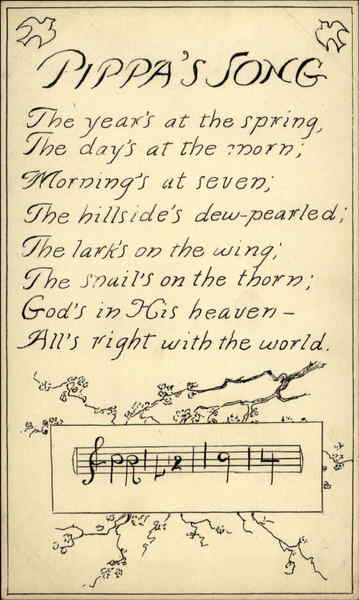 PIPPA'S SONG
The year's at the spring,
The day's at the morn;
Morning's at seven;
The hillside's dew-pearled;
The lark's on the wing;
The snail's on the thorn;
God's in His heaven—
All's right with the world.
APRIL 12 1914